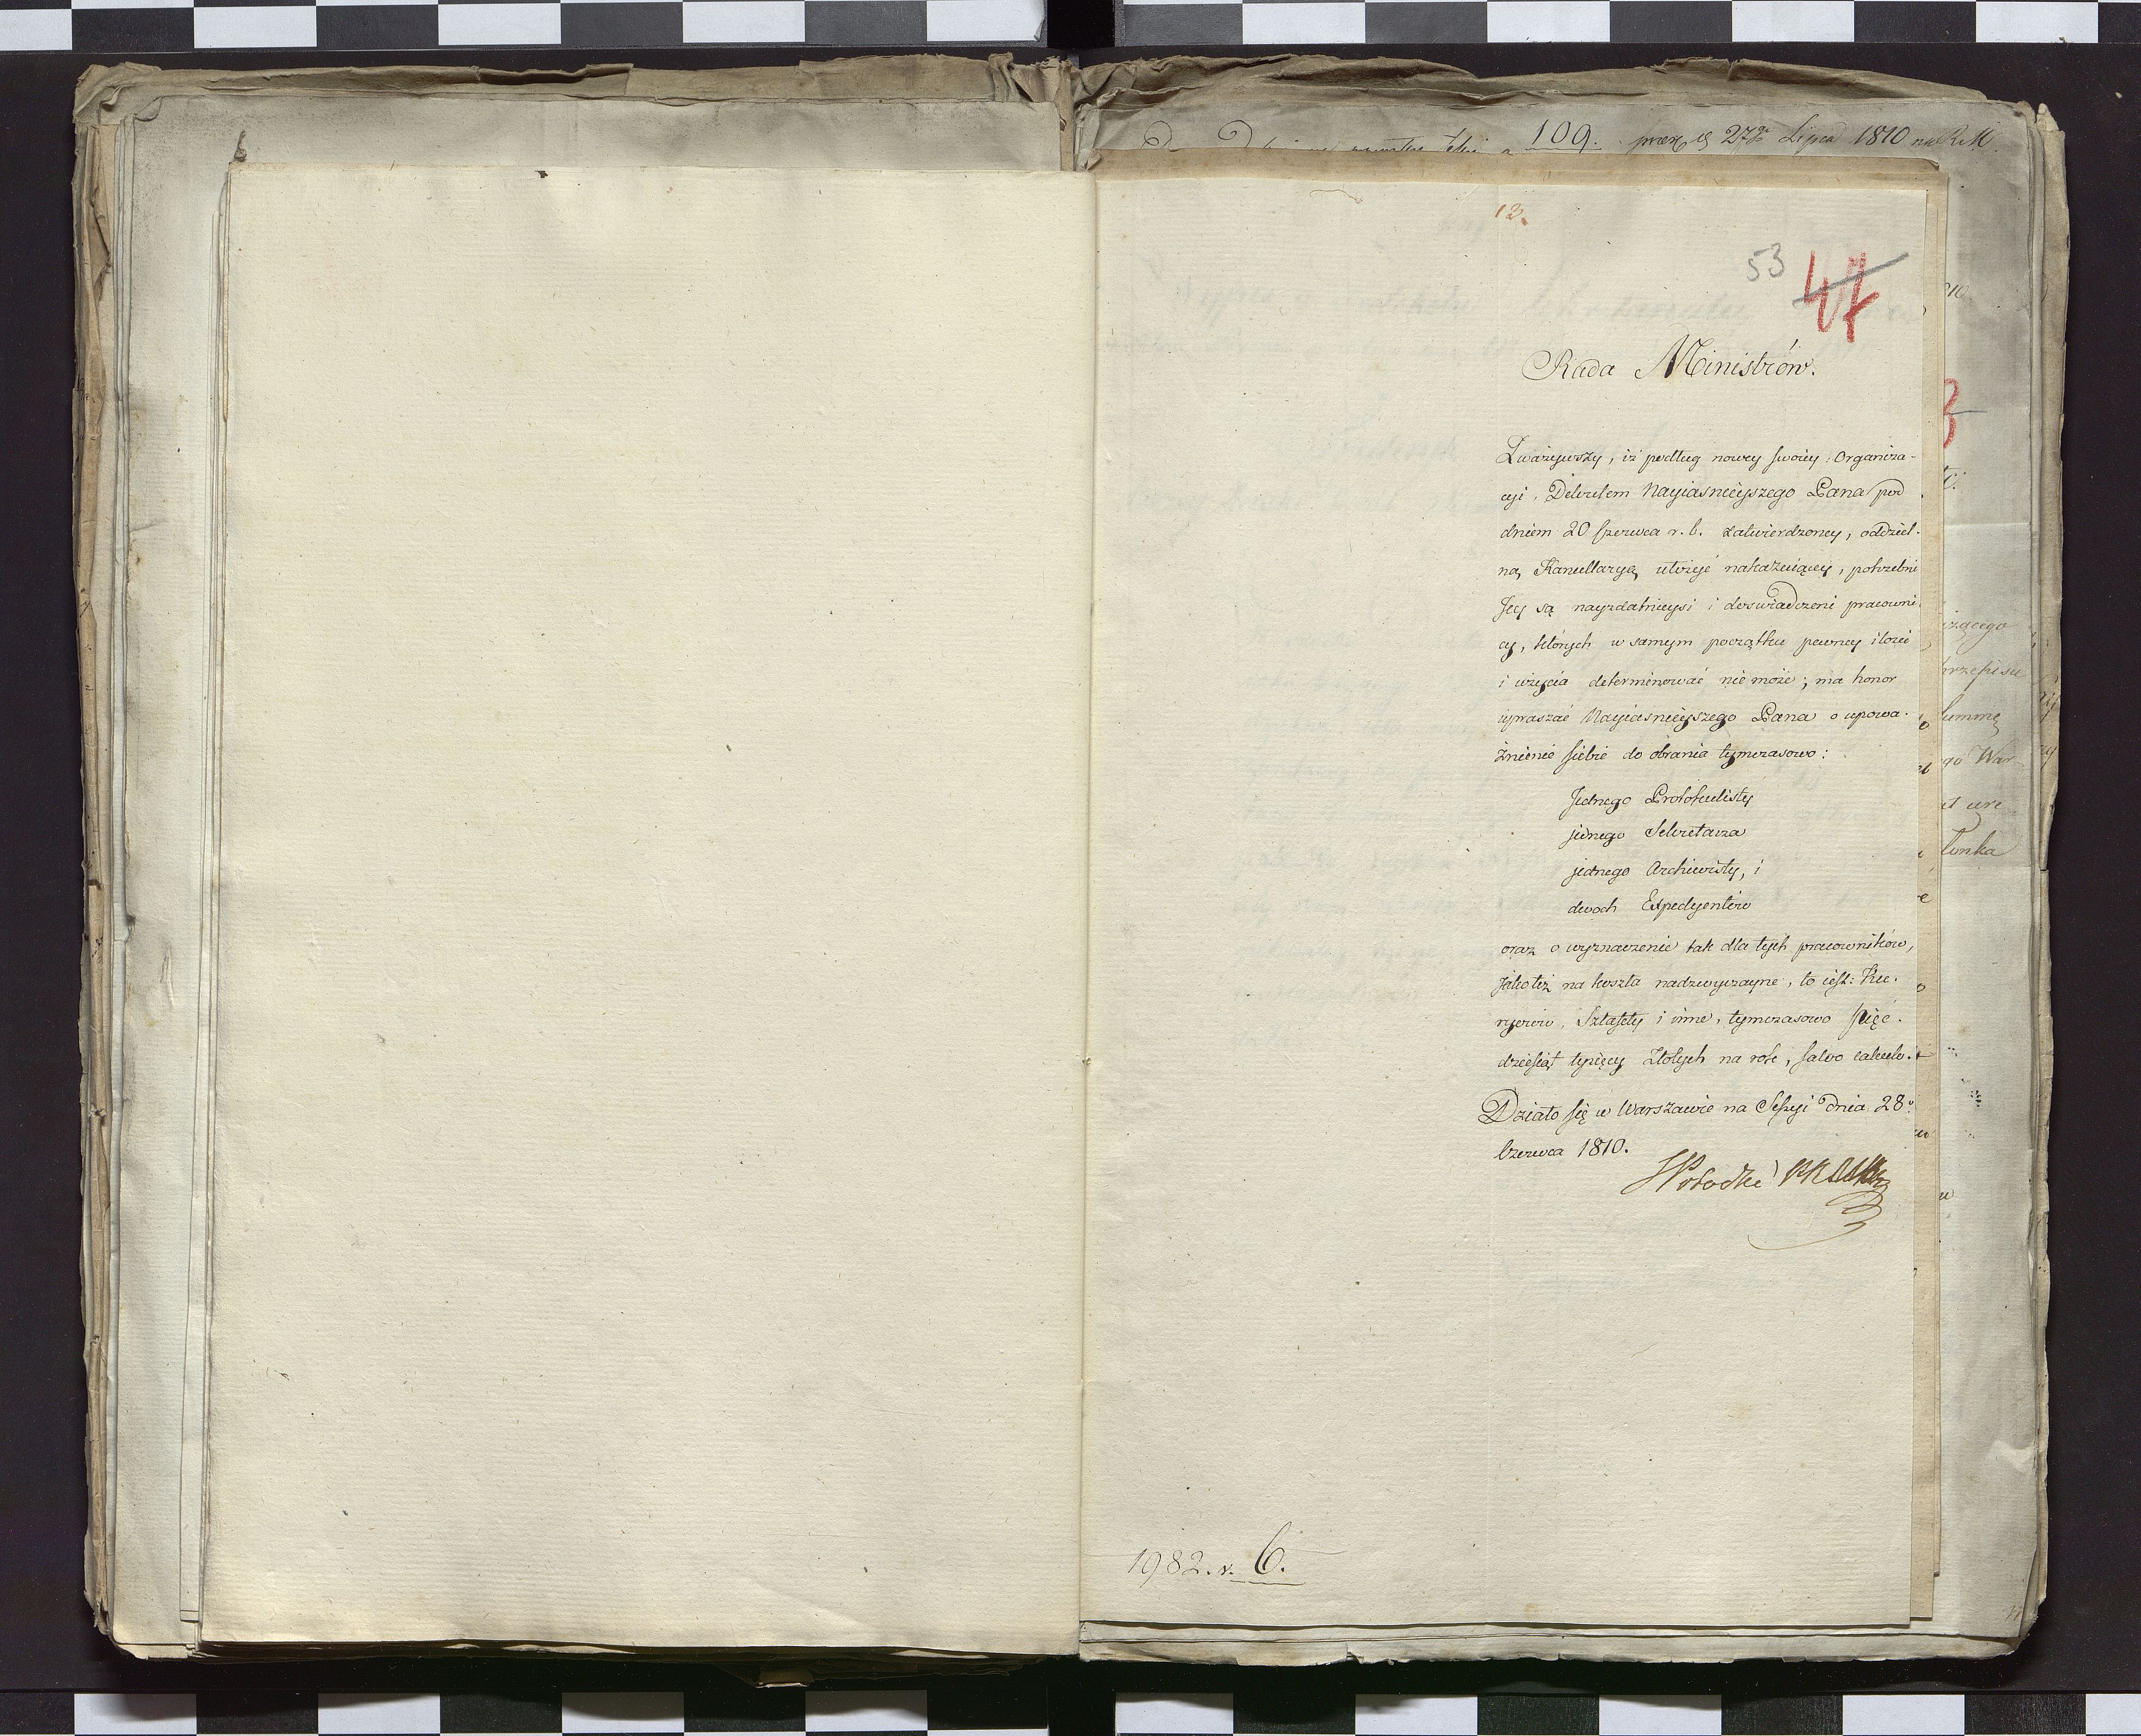 109. 27go Lipca 1810
12.
53 47
Rada Ministrów.
Zważywszy, iż podług nowey swoiey Organiza-
cyi, Dekretem Nayiasnieyszego Pana pod
dniem 20 Czerwca r. b. zatwierdzoney, oddziel-
ną Kancellaryę utożyć nakazuiącey, potrzebni
Jey są nayzdatnieysi i doswiadczeni pracowni
cy, których w samym początku pewney ilości
i użycia determinować nie może; ma honor
upraszać Nayiasnieyszego Pana o upowa-
żnienie siebie do obrania tymczasowo:
Jednego Protokulisty
jednego Sekretarza
jednego Archiwisty, i
dwoch Expedyentów
oraz o wyznaczenie tak dla tych pracowników,
jako też na koszta nadzwyczayne, to iest: Ku-
ryerów, Sztafety i inne, tymczasowo pięć-
dziesiąt tysięcy Złotych na rok, salvo calculo.
Działo się w Warszawie na Sessyi dnia 28o
Czerwca 1810.
SPotocki
1982. v. 6.
izącego
przepisu
summę
go War
tonka